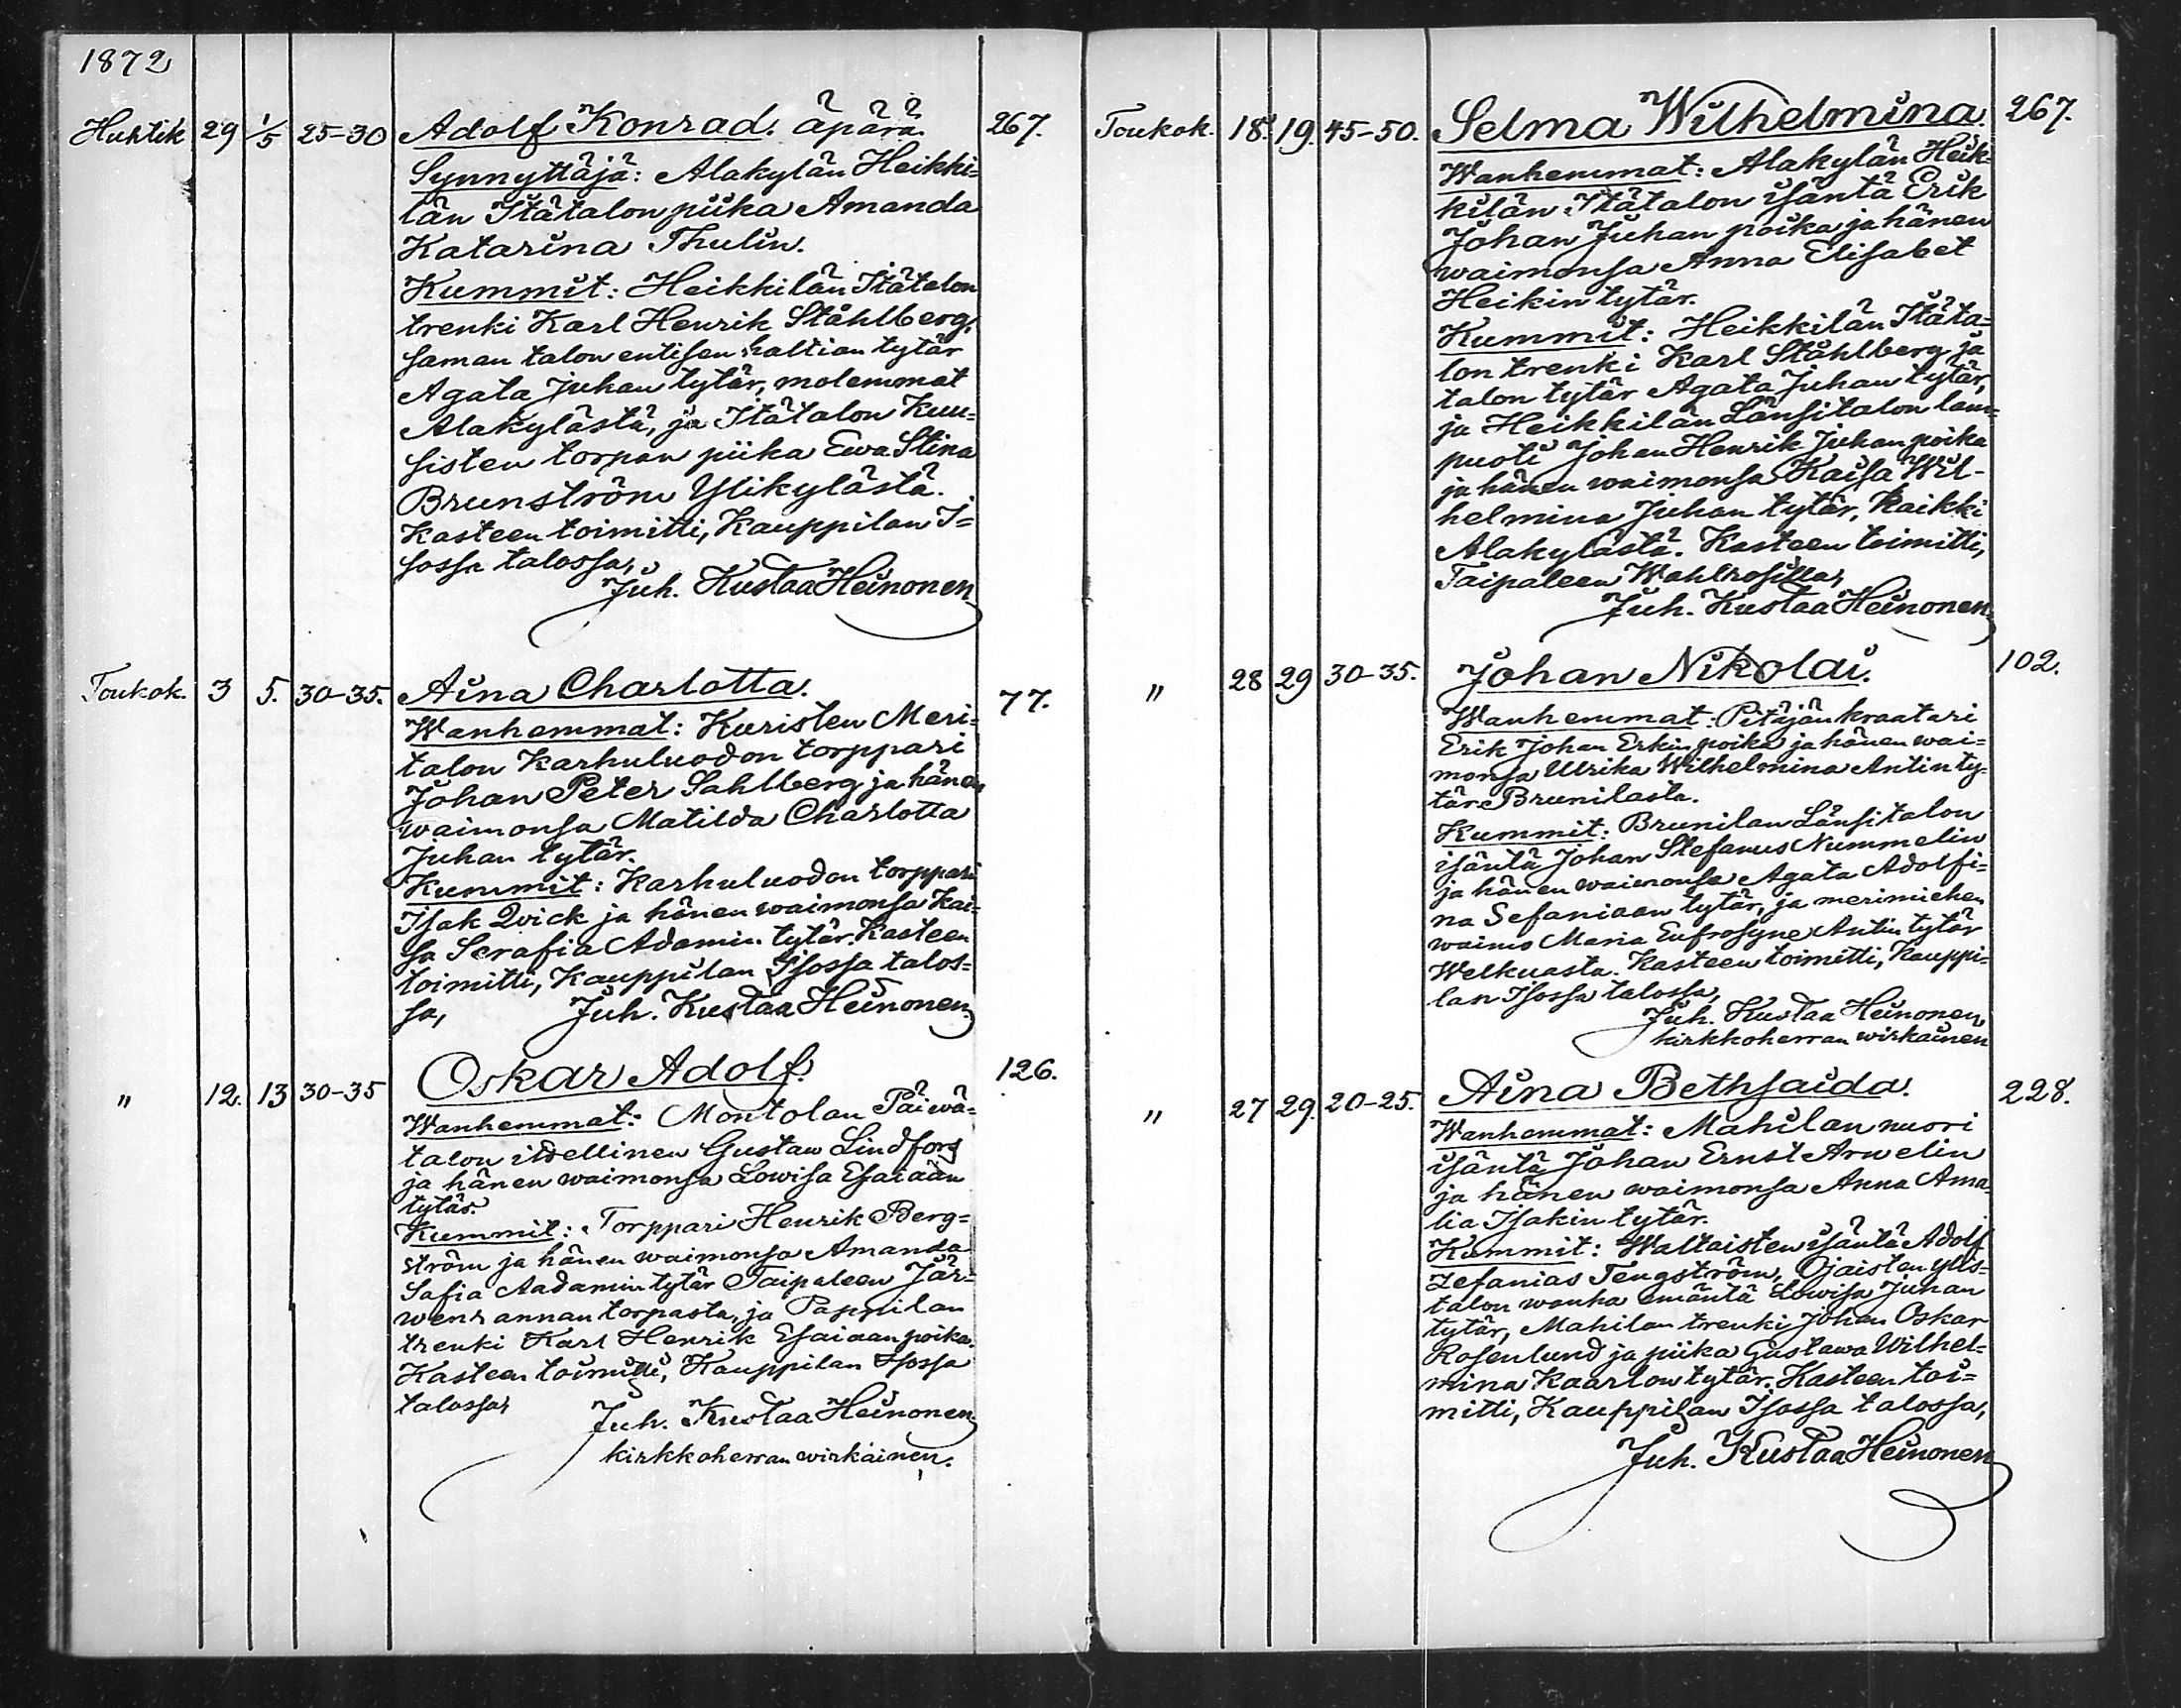 1872
Huhtik 29 1/5 25-30 Adolf Konrad. äpärä. 267.
Synnyttäjä: Alakylän Heikki=
län Itätalon piika Amanda
Katarina Thulin.
Kummit: Heikkilän Itätalon
trenki Karl Henrik Ståhlberg,
saman talon entisen haltian tytär
Agata Juhan tytär, molemmat
Alakylästä, ja Itätalon Kuu=
sisten torpan piika Ewa Stina
Brunström Ylikylästä.
Kasteen toimitti, Kauppilan I=
sossa talossa,
Juh. Kustaa Heinonen
Toukok. 3 5. 30-35. Aina Charlotta. 77.
Wanhemmat: Kuristen Meri=
talon Karhuluodon torppari
Johan Peter Sahlberg ja hänen
waimonsa Matilda Charlotta
Juhan tytär.
Kummit: Karhuluodon torppari
Isak Qvick ja hänen waimonsa Kai=
sa Serafia Adamin tytär. Kasteen
toimitti, Kauppilan Isossa talos=
sa, Juh. Kustaa Heinonen.
" 12. 13 30-35 Oskar Adolf. 126.
Wanhemmat: Montolan Päiwä=
talon itsellinen Gustaw Lindfors
ja hänen waimonsa Lowisa Esaiaan
tytär.
Kummit: Torppari Henrik Berg=
ström ja hänen waimonsa Amanda
Safia Aadamin tytär Taipaleen Jär=
wenrannan torpasta, ja Pappilan
trenki Karl Henrik Esaiaan poika.
Kasteen toimitti, Kauppilan Isossa
talossa,
Juh. Kustaa Heinonen
kirkkoherran wirkainen.
Toukok. 18. 19. 45-50. Selma Wilhelmina 267.
Wanhemmat: Alakylän Heik=
kilän Itätalon isäntä Erik
Johan Juhan poika ja hänen
waimonsa Anna Elisabet
Heikin tytär.
Kummit: Heikkilän Itäta=
lon trenki Karl Ståhlberg ja
talon tytär Agata Juhan tytär,
ja Heikkilän Länsitalon lam=
puoti Johan Henrik Juhan poika
ja hänen waimonsa Kaisa Wil-
helmina Juhan tytär, kaikki
Alakylästä. Kasteen toimitti,
Taipaleen Wahlrosilla,
Juh. Kustaa Heinonen
" 28 29 30-35. Johan Nikolai. 102.
Wanhemmat: Pitäjän kraatari
Erik Johan Erkin poika ja hänen wai=
monsa Ulrika Wilhelmina Antin ty=
tär Brunilasta.
Kummit: Brunilan Länsitalon
isäntä Johan Stefanus Nummelin
ja hänen waimonsa Agata Adolfi=
na Sefaniaan tytär, ja merimiehen
waimo Maria Eufrosyne Antin tytär
Welkuasta. Kasteen toimitti, Kauppi=
lan Isossa talossa,
Juh. Kustaa Heinonen
kirkkoherran wirkainen
" 27 29. 20-25. Aina Bethsaida. 228.
Wanhemmat: Mahilan nuori
isäntä Johan Ernst Arwelin
ja hänen waimonsa Anna Ama=
lia Isakin tytär.
Kummit: Waltaisten isäntä Adolf
Zefanias Tengström, Ojaisten ylis=
talon wanha emäntä Lowisa Juhan
tytär, Mahilan trenki Johan Oskar
Rosenlund ja piika Gustawa Wilhel=
mina Kaarlon tytär. Kasteen toi=
mitti, Kauppilan Isossa talossa,
Juh. Kustaa Heinonen